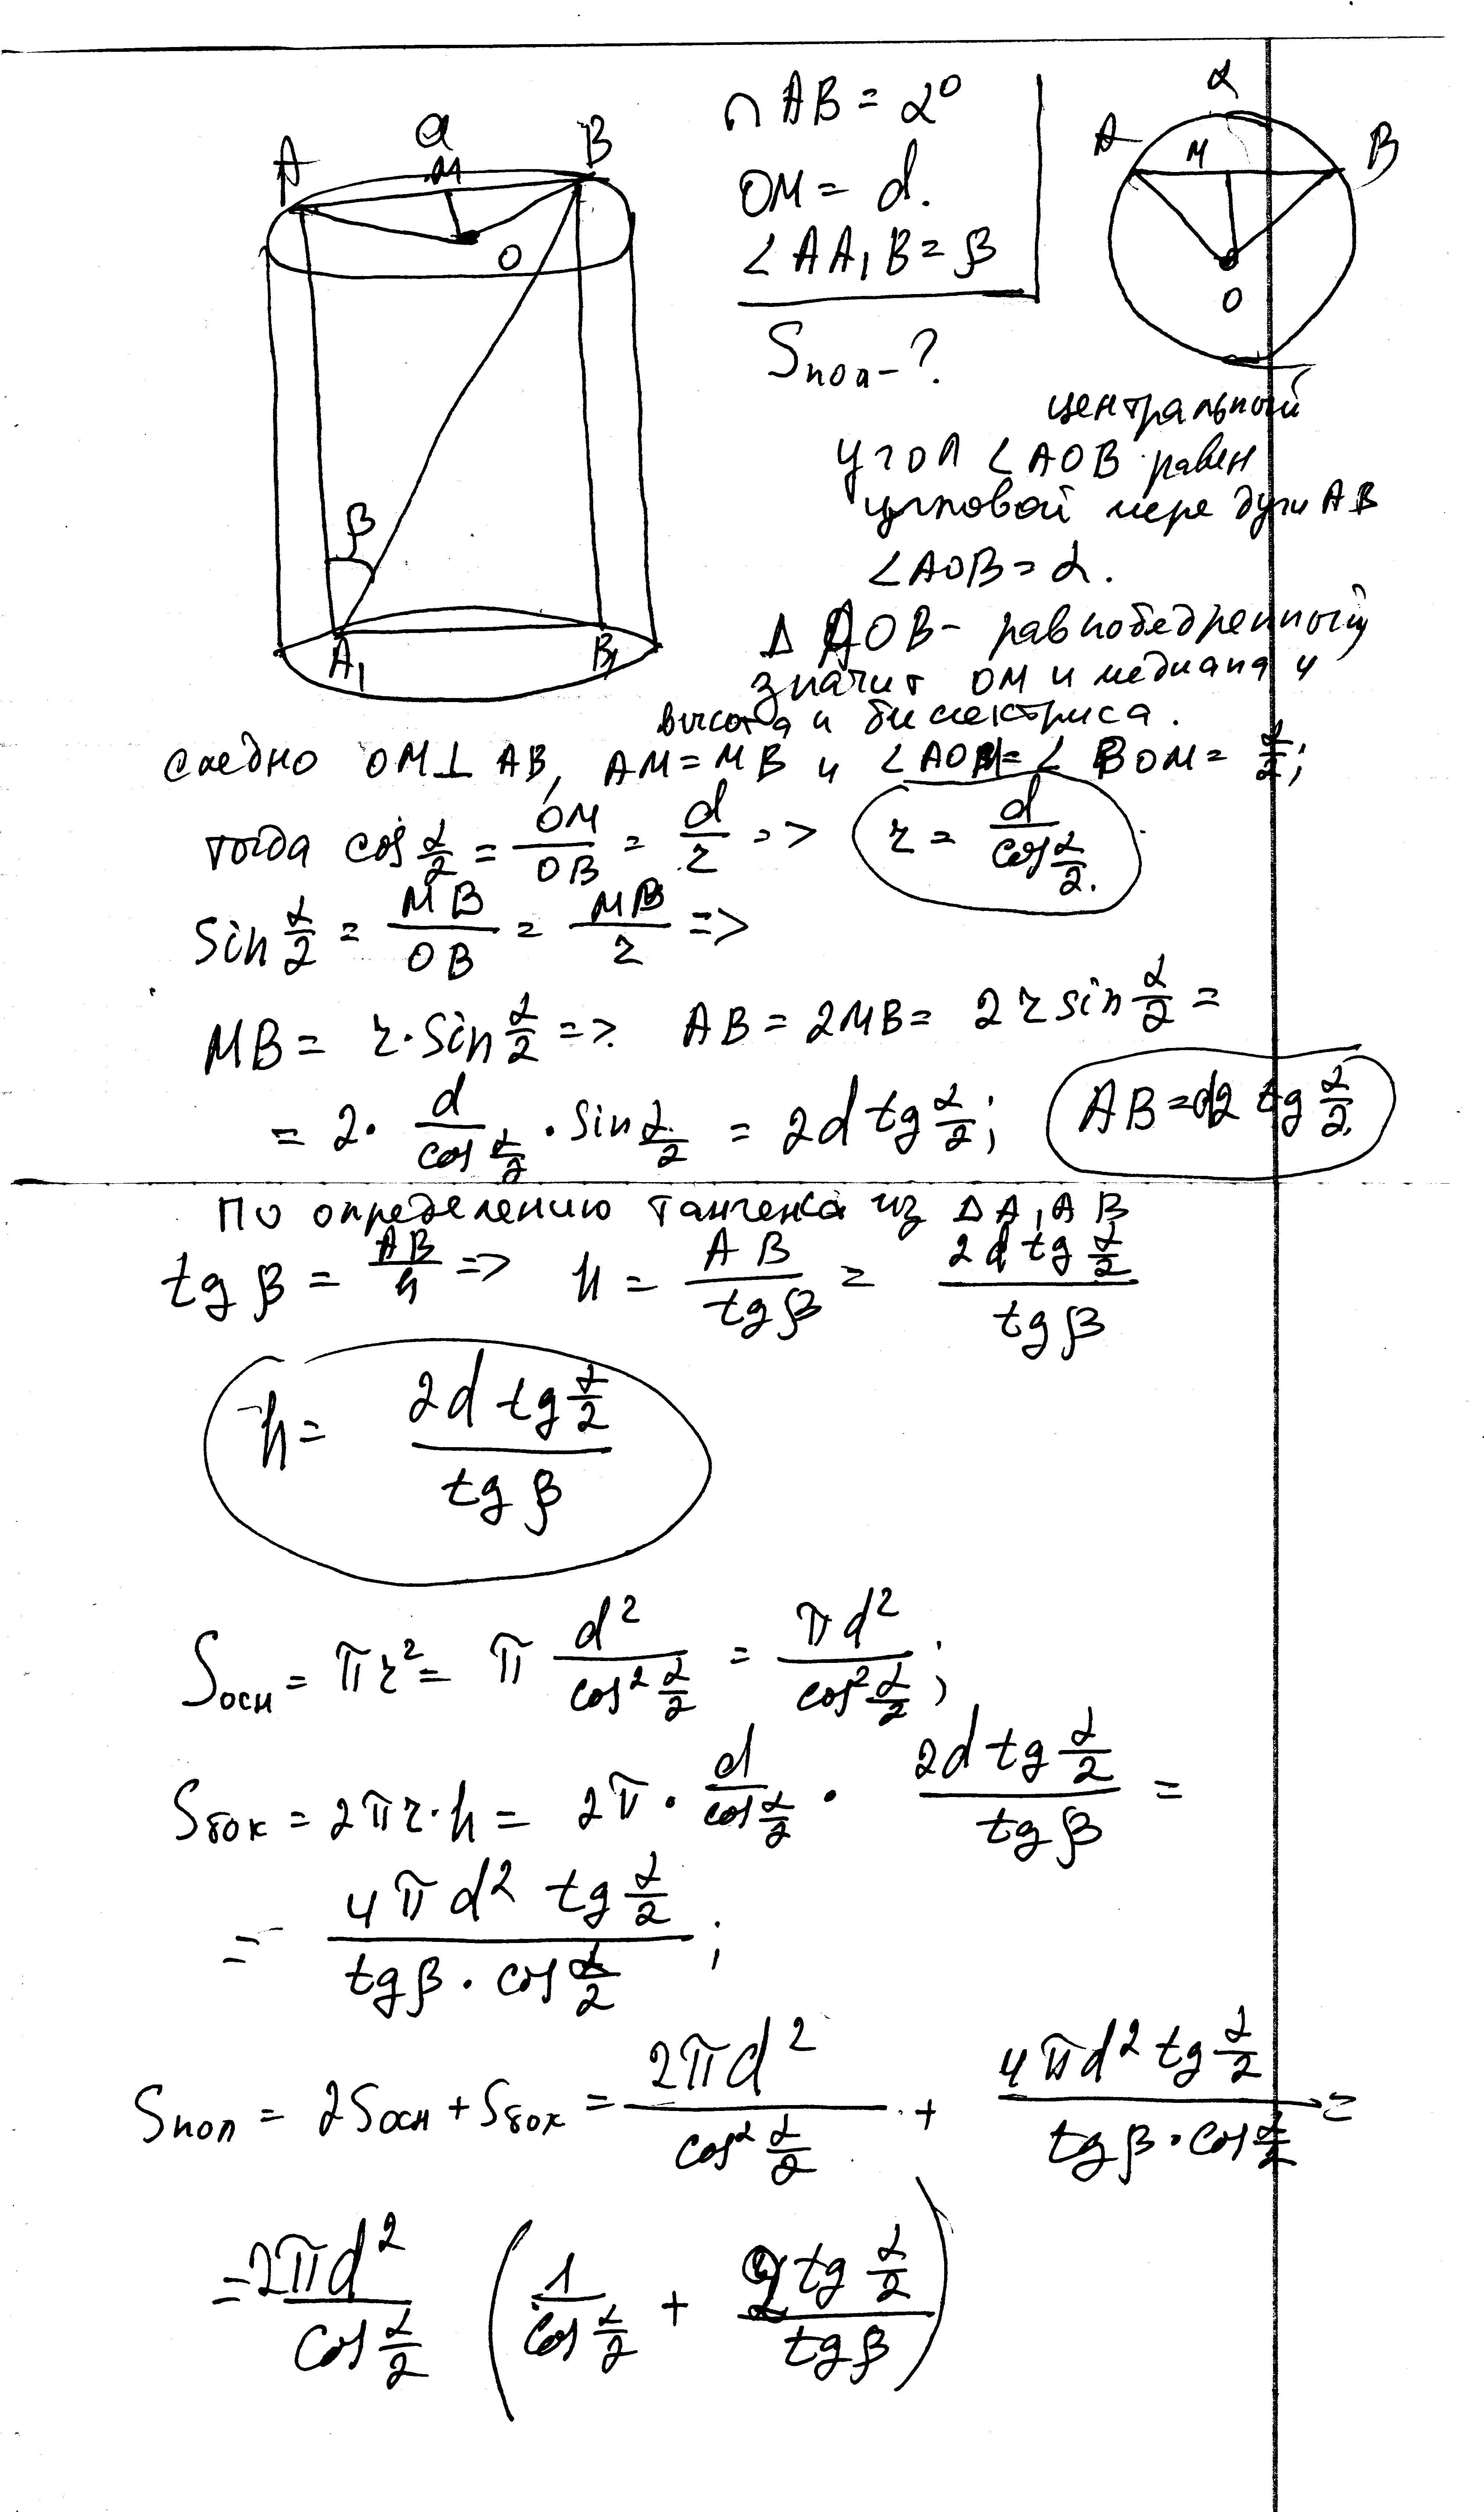 α
A M B
O
∩ AB = α°
OM = d.
∠ AA₁B = β
Sпол - ?
α
A M B
O
β
A₁ B₁
центральный
угол ∠AOB равен
угловой мере дуги AB
∠AOB = α.
Δ AOB - равнобедренный
значит OM и медиана и
высота и биссектриса.
следно OM ⊥ AB, AM = MB и ∠AOM = ∠BOM = α/2;
тогда cos α/2 = OM/OB = d/r => r = d/cos α/2.
sin α/2 = MB/OB = MB/r =>
MB = r · sin α/2 => AB = 2MB = 2 r sin α/2 =
= 2 · d/cos α/2 · sin α/2 = 2d tg α/2; AB = d2 tg α/2.
По определению тангенса из Δ A₁AB
tg β = AB/h => h = AB/tg β = 2d tg α/2 / tg β
h = 2d tg α/2 / tg β
Sосн = πr² = π d²/cos² α/2 = πd²/cos² α/2;
Sбок = 2πr·h = 2π · d/cos α/2 · 2d tg α/2 / tg β =
= 4πd² tg α/2 / tg β · cos α/2;
Sпол = 2Sосн + Sбок = 2πd²/cos² α/2 + 4πd² tg α/2 / tg β · cos α/2 =
= 2πd²/cos α/2 (1/cos α/2 + 2 tg α/2 / tg β)